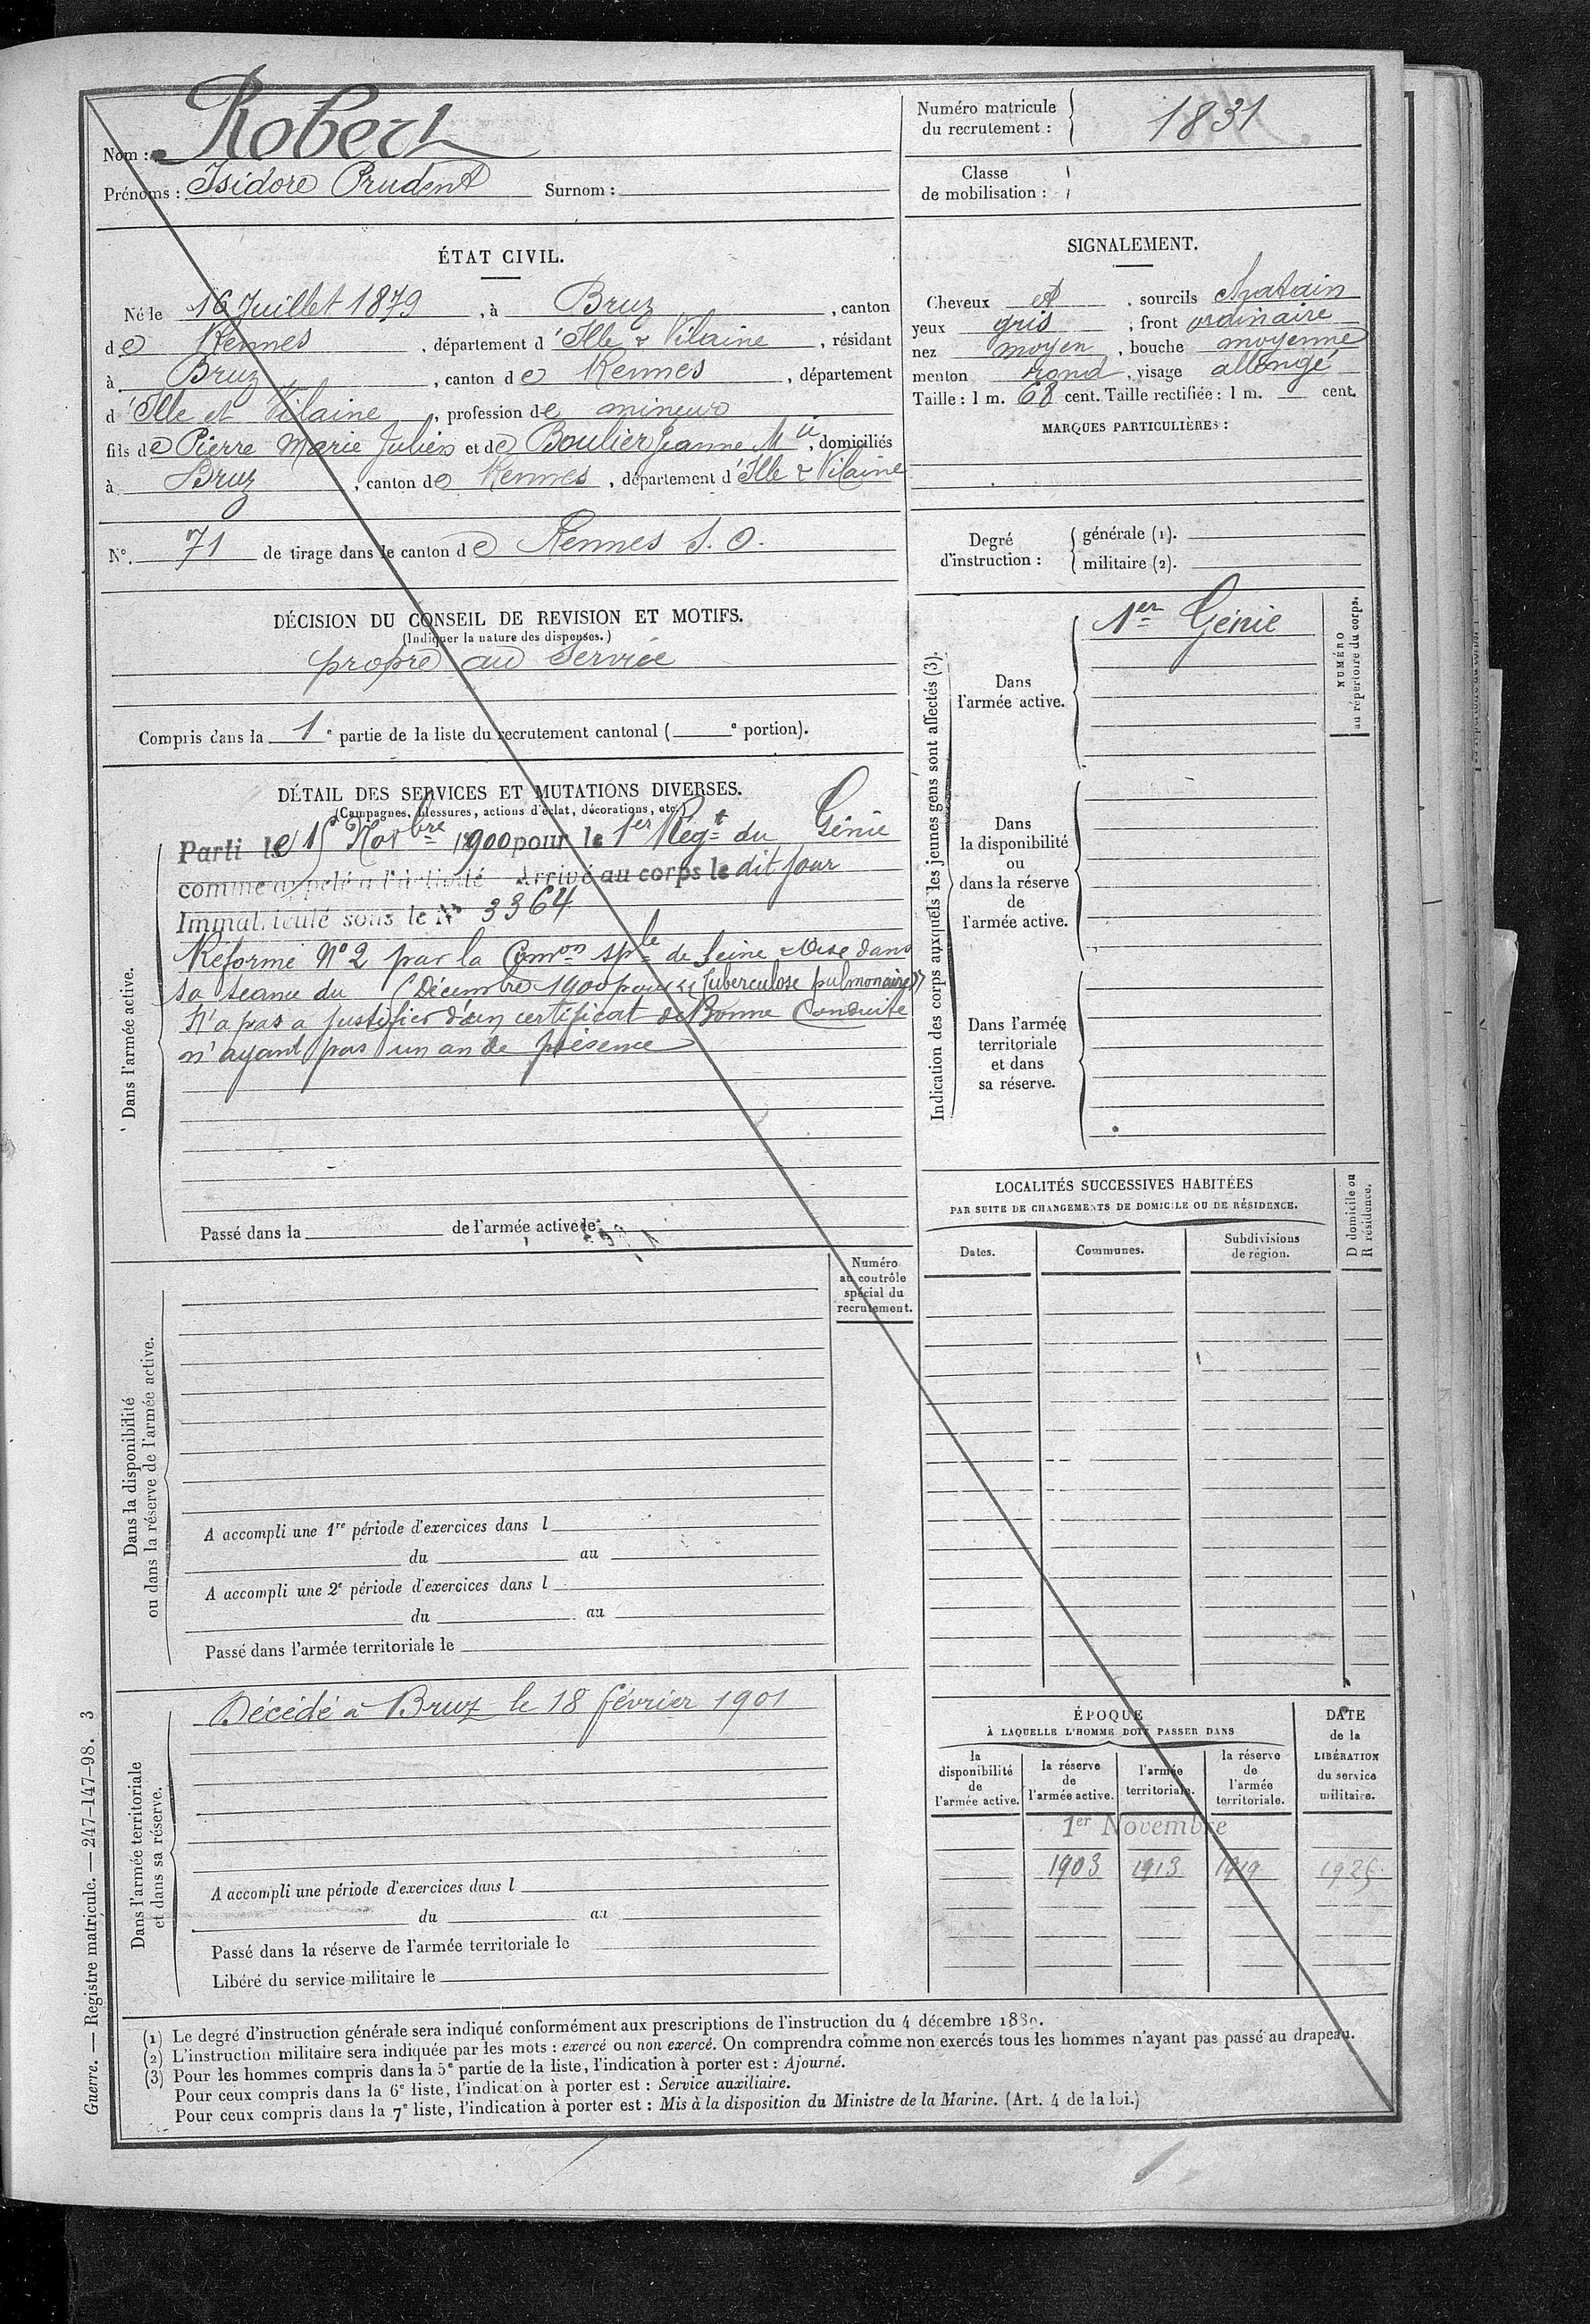 Nom : Robert
Prénoms : Isidore Prudent Surnom :
Numéro matricule
du recrutement : 1831
Classe
de mobilisation :
ÉTAT CIVIL.
Né le 16 Juillet 1879, à Bruz, canton
de Rennes, département d'Ille & Vilaine, résidant
à Bruz, canton de Rennes, département
d'Ille et Vilaine, profession de mineur
fils de Pierre Marie Julien et de Boulier Jeanne Mie, domiciliés
à Bruz, canton de Rennes, département d'Ille & Vilaine
N°. 71 de tirage dans le canton de Rennes S. O.
SIGNALEMENT.
Cheveux et, sourcils chatain
yeux gris, front ordinaire
nez moyen, bouche moyenne
menton rond, visage allongé
Taille : 1 m. 68 cent. Taille rectifiée : 1 m. cent.
MARQUES PARTICULIÈRES :
Degré
d'instruction :
générale (1).
militaire (2).
DÉCISION DU CONSEIL DE REVISION ET MOTIFS.
(Indiquer la nature des dispenses.)
propre au service
Compris dans la 1e partie de la liste du recrutement cantonal ( e portion).
DÉTAIL DES SERVICES ET MUTATIONS DIVERSES.
(Campagnes, blessures, actions d'éclat, décorations, etc.)
Dans l'armée active.
Parti le 15 Novbre 1900 pour le 1er Régt du Génie
comme appelé à l'activité Arrivé au corps le dit jour
Immatriculé sous le N° 3364
Réformé N° 2 par la Comon sple de Seine & Oise dans
sa séance du Décembre 1900 pour "Tuberculose pulmonaire"
N'a pas a justifier d'un certificat de Bonne Conduite
n'ayant pas un an de présence
Passé dans la de l'armée active le
Indication des corps auxquels les jeunes gens sont affectés (3).
Dans
l'armée active.
1er Génie
NUMÉRO
au répertoire du corps.
Dans
la disponibilité
ou
dans la réserve
de
l'armée active.
Dans l'armée
territoriale
et dans
sa réserve.
LOCALITÉS SUCCESSIVES HABITÉES
PAR SUITE DE CHANGEMENTS DE DOMICILE OU DE RÉSIDENCE.
Dates.
Communes.
Subdivisions
de région.
D domicile ou
R résidence.
Numéro
au contrôle
spécial du
recrutement.
Dans la disponibilité
ou dans la réserve de l'armée active.
A accompli une 1re période d'exercices dans l
du au
A accompli une 2e période d'exercices dans l
du au
Passé dans l'armée territoriale le
Dans l'armée territoriale
et dans sa réserve.
Décédé à Bruz le 18 février 1901
A accompli une période d'exercices dans l
du au
Passé dans la réserve de l'armée territoriale le
Libéré du service militaire le
ÉPOQUE
À LAQUELLE L'HOMME DOIT PASSER DANS
la
disponibilité
de
l'armée active.
la réserve
de
l'armée active.
l'armée
territoriale.
la réserve
de
l'armée
territoriale.
DATE
de la
LIBÉRATION
du service
militaire.
1er Novembre
1903 1913 1919 1925
(1) Le degré d'instruction générale sera indiqué conformément aux prescriptions de l'instruction du 4 décembre 1889.
(2) L'instruction militaire sera indiquée par les mots : exercé ou non exercé. On comprendra comme non exercés tous les hommes n'ayant pas passé au drapeau.
(3) Pour les hommes compris dans la 5e partie de la liste, l'indication à porter est : Ajourné.
Pour ceux compris dans la 6e liste, l'indication à porter est : Service auxiliaire.
Pour ceux compris dans la 7e liste, l'indication à porter est : Mis à la disposition du Ministre de la Marine. (Art. 4 de la loi.)
Guerre. — Registre matricule. — 247-147-98. 3